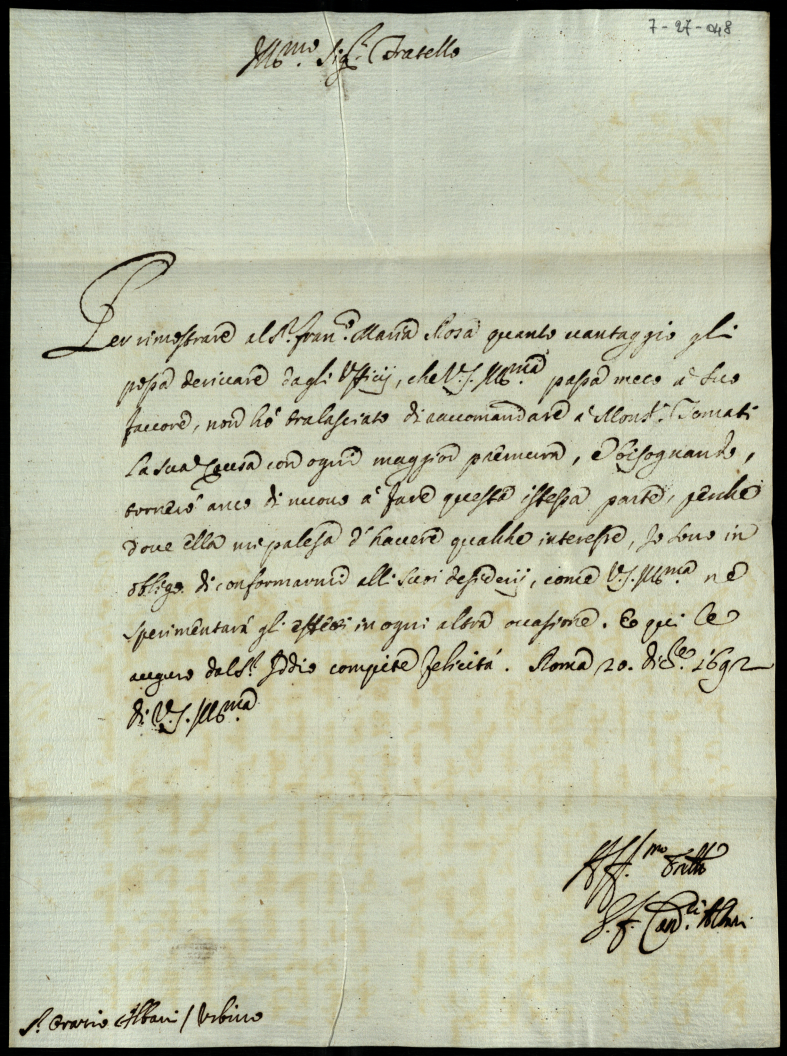 7-27-048
Ill.mo Sig.r Fratello
Per rimostrare al S.r Fran.co Maria Rosa quanto vantaggio gli
possa derivare dagli Ufficij, che V.S. Ill.ma passa meco à suo
favore, non hò tralasciato di raccomandare à Mons.r Tomati
la sua Causa con ogni maggior premura, e bisognando,
tornerò anco di nuovo à fare questa istessa parte, perche
dove Ella mi palesa d'havere qualche interesse, Io sono in
obligo di conformarmi alli suoi desiderij, come V.S. Ill.ma ne
sperimentarà gli effetti in ogni altra occasione. E qui le
auguro dal S.r Iddio compite felicità. Roma 20. Xbre 1692
di V.S. Ill.ma
Aff.mo Frello
G. F. Card.li Albani
S.r Orazio Albani / Urbino